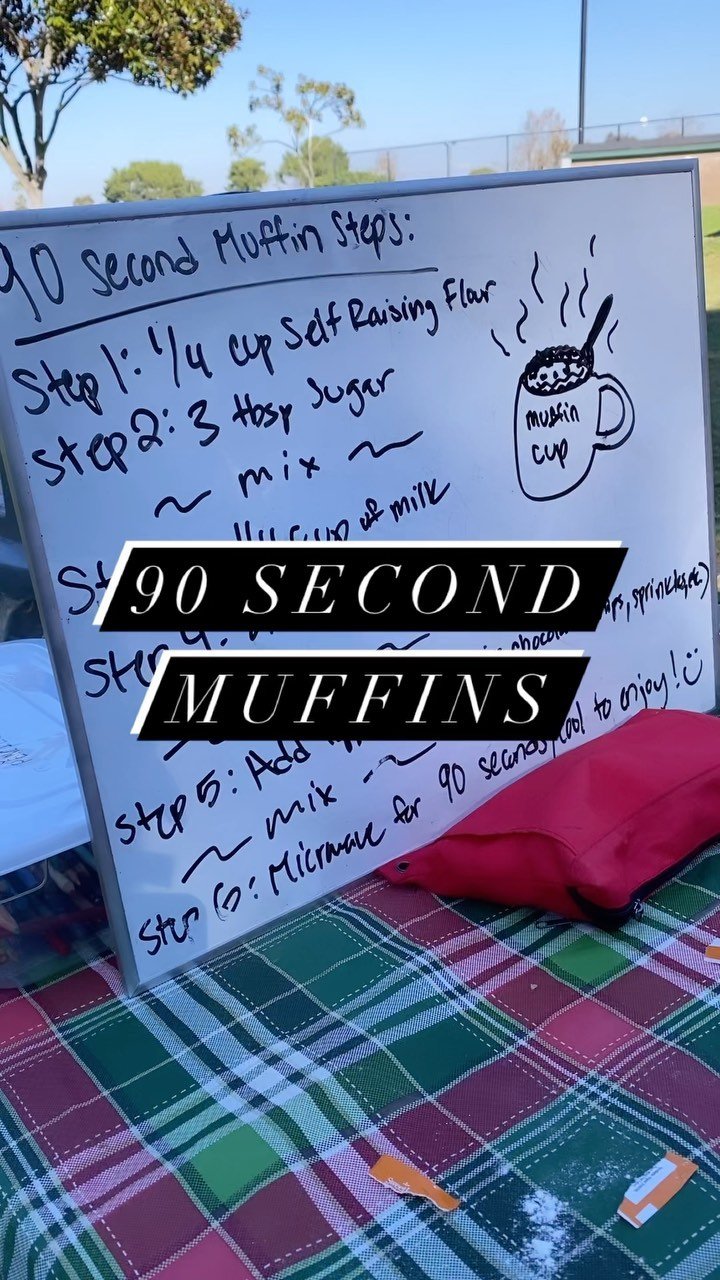 90 Second Muffin Steps:
Step 1: 1/4 cup Self Raising Flour
Step 2: 3 tbsp Sugar
~ mix ~
muffin
cup
1/4 cup of milk
90 SECOND
Step 4:
sprinkles, etc)
MUFFINS
Step 5: Add
~ mix ~
Step 6: Microwave for 90 seconds, cool to enjoy!